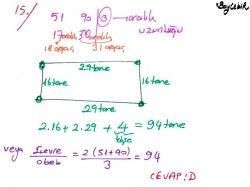 15.)
51 90 ③ → aralık
uzunluğu
17 aralık 30 aralık
18 ağaç 31 ağaç
29 tane
16 tane 16 tane
29 tane
2.16 + 2.29 + 4 = 94 tane
köşe
veya Çevre / obeb = 2(51+90) / 3 = 94
CEVAP: D